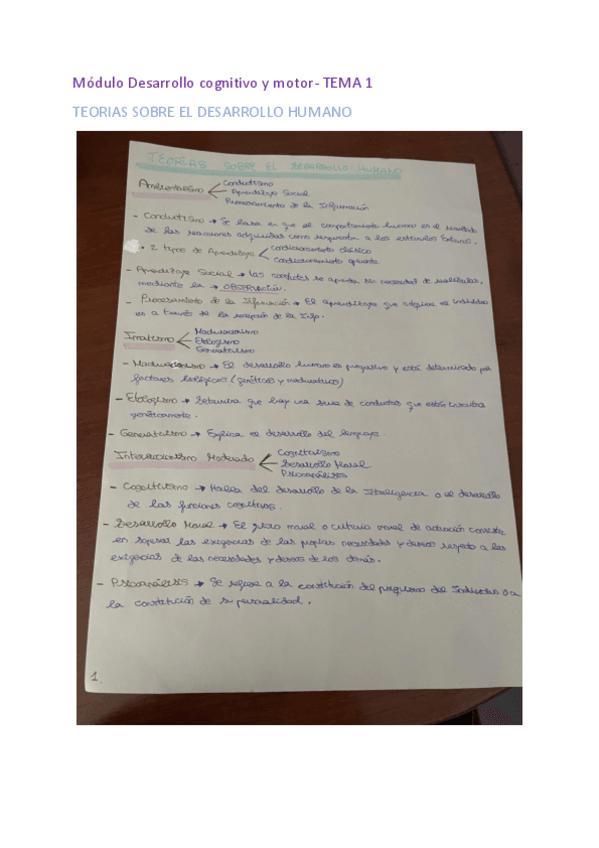 Módulo Desarrollo cognitivo y motor- TEMA 1
TEORIAS SOBRE EL DESARROLLO HUMANO
TEORÍAS SOBRE EL DESARROLLO HUMANO
Ambientalismo
Conductismo
Aprendizaje Social
Procesamiento de la Información
- Conductismo → Se basa en que el comportamiento humano es el resultado
de las reacciones adquiridas como respuesta a los estímulos externos.
• 2 tipos de Aprendizaje
condicionamiento clásico
condicionamiento operante
- Aprendizaje Social → Las conductas se aprenden sin necesidad de realizarlas,
mediante la → OBSERVACIÓN.
- Procesamiento de la Información → El aprendizaje que adquiere el individuo
es a través de la recepción de la Info.
Innatismo
Maduracionismo
Etologismo
Generativismo
- Maduracionismo → El desarrollo humano es progresivo y está determinado por
factores biológicos (genéticos y madurativos)
- Etologismo → Determina que hay una serie de conductas que están inscritas
genéticamente.
- Generativismo → Explica el desarrollo del lenguaje
Interaccionismo Moderado
Cognitivismo
Desarrollo Moral
Psicoanálisis
- Cognitivismo → Habla del desarrollo de la Inteligencia o el desarrollo
de las funciones cognitivas.
- Desarrollo Moral → El juicio moral o criterio moral de actuación consiste
en sopesar las exigencias de las propias necesidades y deseos respecto a las
exigencias de las necesidades y deseos de los demás.
- Psicoanálisis → Se refiere a la constitución del psiquismo del Individuo o a
la constitución de su personalidad.
1